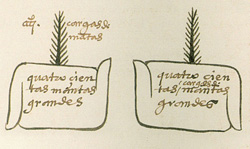 cargas de
mantas
quatro cien
tas mantas
grandes
quatro cien
cargas de
tas/mantas
grandes